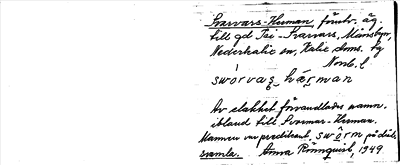 Svarvars-Herman, förutv. äg.
till gd Pei-Svarvars, Månsbyn,
Nederkalix sn, Kalix doms. tg
Norrb. l
swörvas hærman
Av elakhet förvandlades namn.
ibland till Svormar-Herman.
Mannen var predikant. swörm på dial.
svamla. Anna Rönnquist, 1949